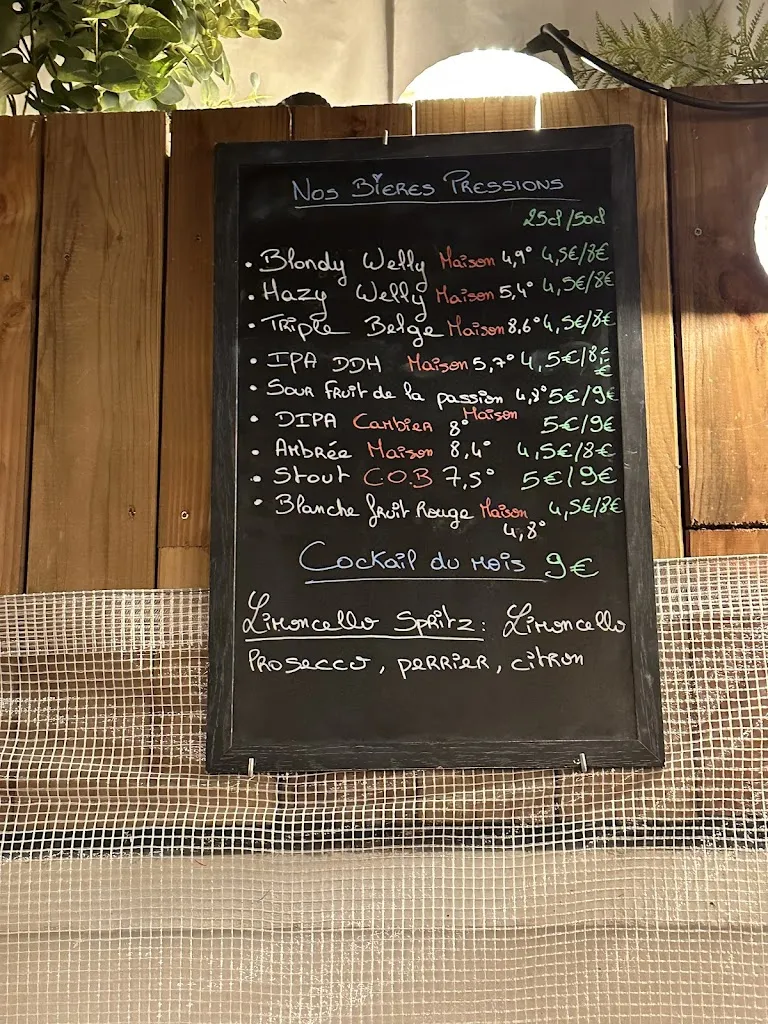 Nos Bières Pressions
25cl/50cl
• Blondy Welly Maison 4,9° 4,5€/8€
• Hazy Welly Maison 5,4° 4,5€/8€
• Triple Belge Maison 8,6° 4,5€/8€
• IPA DDH Maison 5,7° 4,5€/8€
• Sour fruit de la passion 4,8° 5€/9€
Maison
• DIPA Cambier 8° 5€/9€
• Ambrée Maison 8,4° 4,5€/8€
• Stout C.O.B 7,5° 5€/9€
• Blanche fruit Rouge Maison 4,5€/8€
4,8°
Cockail du mois 9€
Limoncello Spritz: Limoncello
Prosecco, perrier, citron